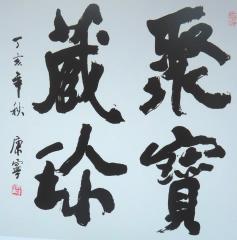 聚寶
藏珍
丁亥年秋 康寧